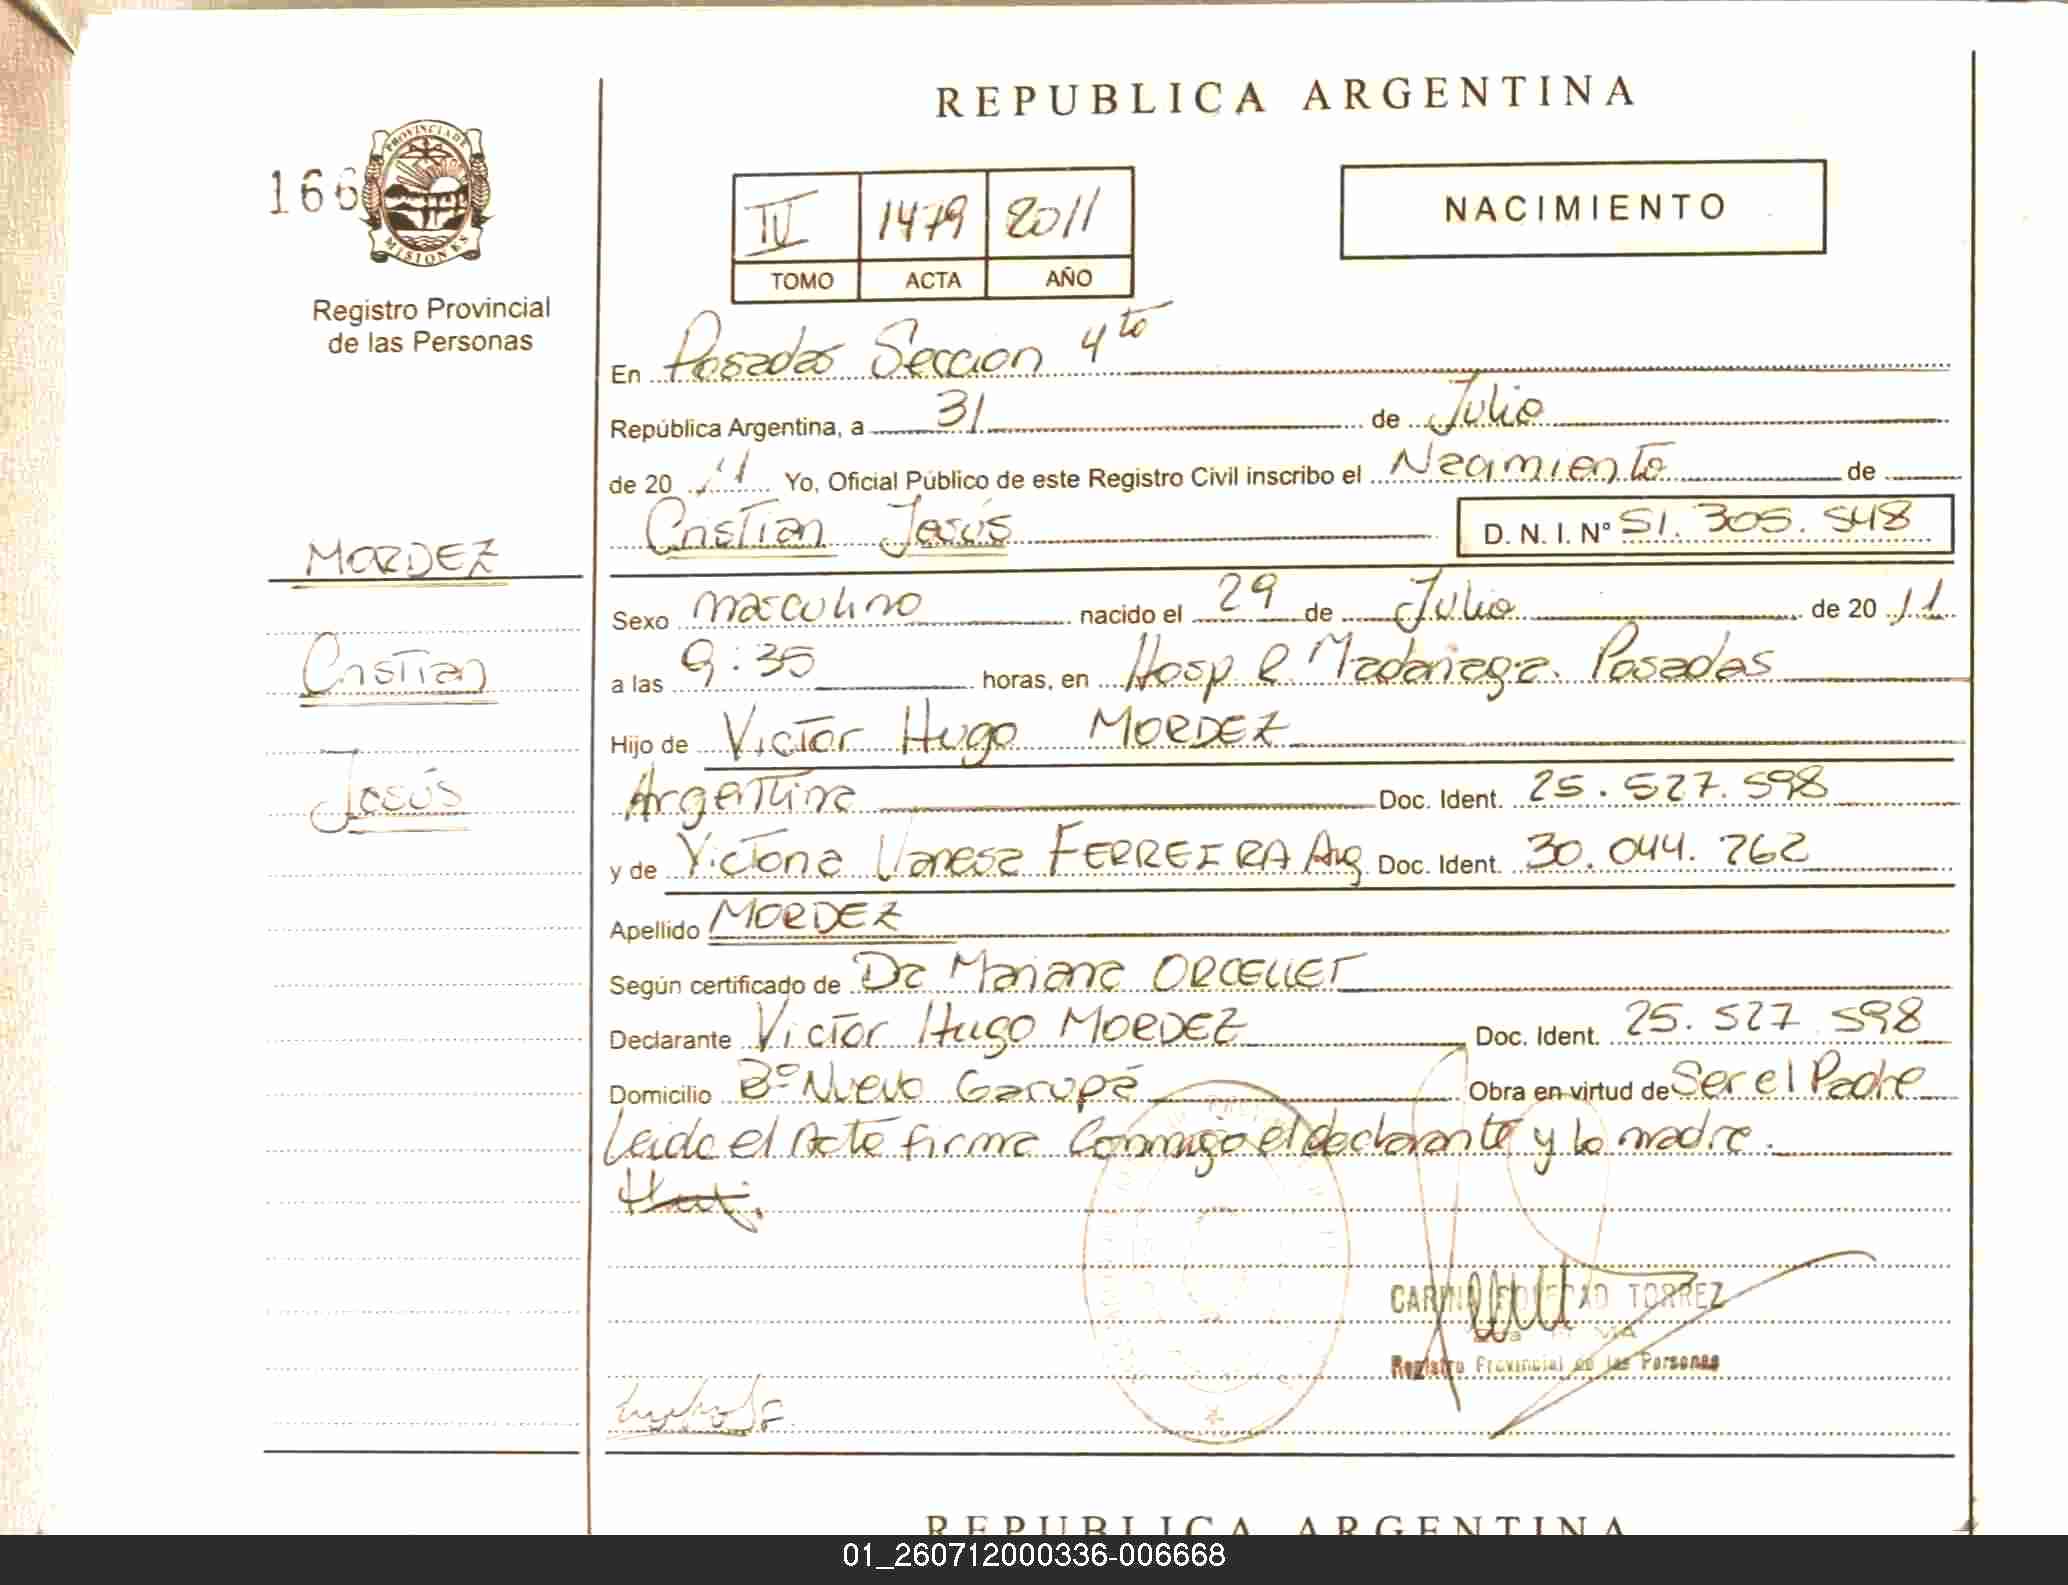 REPUBLICA ARGENTINA
166
PROVINCIA DE
MISIONES
Registro Provincial
de las Personas
IV 1479 2011
TOMO ACTA AÑO
NACIMIENTO
En Posadas Seccion 4to
República Argentina, a 31 de Julio
de 20 11 Yo, Oficial Público de este Registro Civil inscribo el Nacimiento de
Cristian Jesús D. N. I. Nº 51.305.548
MORDEZ
Cristian
Jesús
Sexo masculino nacido el 29 de Julio de 20 11
a las 9:35 horas, en Hosp R. Madariaga. Posadas
Hijo de Victor Hugo MORDEZ
Argentina Doc. Ident. 25.527.598
y de Victoria Vanesa FERREIRA Arg Doc. Ident. 30.044.262
Apellido MORDEZ
Según certificado de Dra Mariana ORCELLET
Declarante Victor Hugo MORDEZ Doc. Ident. 25.527.598
Domicilio Bº Nuevo Garupá Obra en virtud de Ser el Padre
Leida el Acta firma Conmigo el declarante y la madre.
CARINA SOLEDAD TORREZ
Registro Provincial de las Personas
REPUBLICA ARGENTINA
01_260712000336-006668